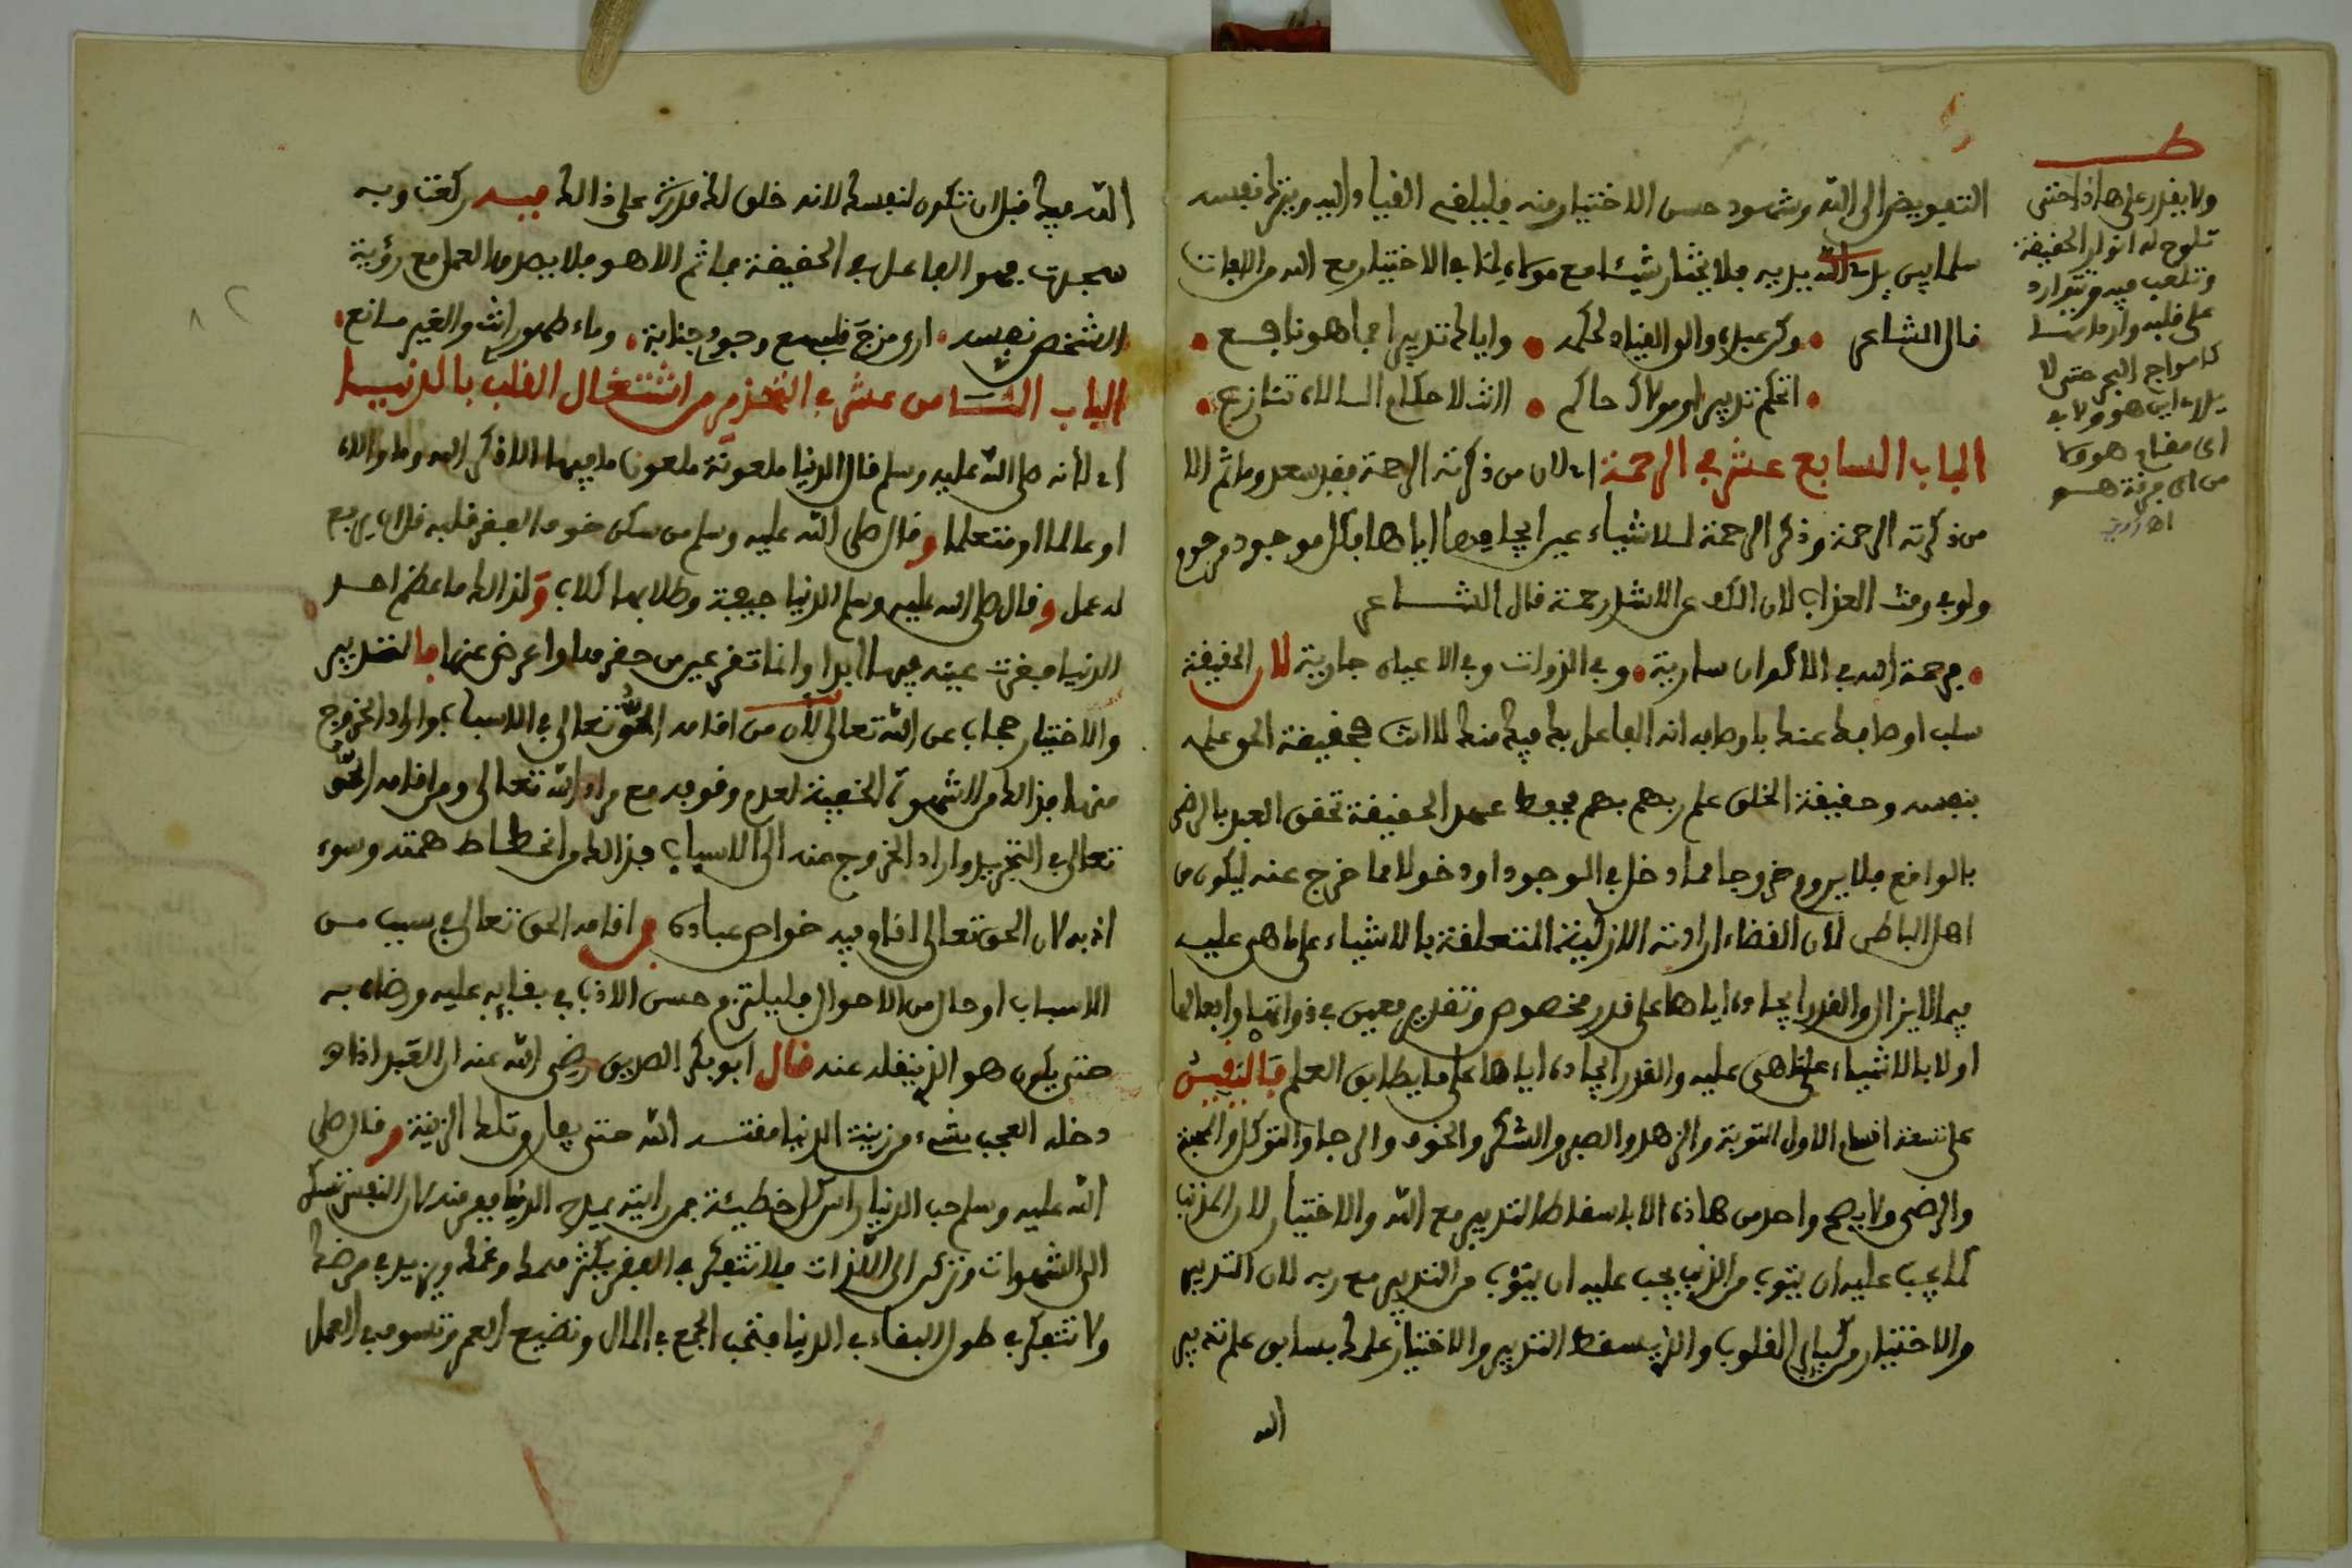 التفويض الى الله وشهود حسن الاختيار منه فليلقى القياد اليه وينزل نفسه
سلما بين يدى الله بيديه فلا يختار شيئا مع مولاه لما فى الاختيار مع الله من الافات
قال الشاعر • وكن عبده والق القياد لحكمه • واياك تدبيرا فما هو نافع •
• اتحكم تدبيرا ومولاك حاكم • اانت لاحكام الالاه تنازع •
الباب السابع عشر فى الرحمة اى لان من ذكرته الرحمة فقد سعد وما ثم الا
من ذكرته الرحمة وذكر الرحمة للاشياء عين ايجادها اياها فكل موجود مرحوم
ولو فى وقت العذاب لان الكف عن الاشد رحمة قال الشاعر
• فرحمة الله فى الاكوان سارية • وفى الذوات وفى الاعيان جارية لان الحقيقة
سلب اوصافك عنك باوصافه انه الفاعل بك فيك منك لا انت فحقيقة الحق علمه
بنفسه وحقيقة الخلق علم ربهم بهم فقط عهد الحقيقة تحقق العبد بالرضى
بالواقع فلا يروم خروجا مما دخل فى الوجود او دخولا مما خرج عنه ليكون من
اهل الباطن لان القضاء ارادته الازلية المتعلقة بالاشياء على ما هى عليه
فيما لا يزال والقدر ايجاده اياها على قدر مخصوص وتقدير معين فى ذواتها وافعالها
اولا بالاشياء على ما هى عليه والقدر ايجاده اياها على ما يطابق العلم فالنفيس
على تسعة اقسام الاول التوبة والزهد والصبر والشكر والخوف والرجا والتوكل والمحبة
والرضى ولا يصح واحد من هاذه الا باسقاط التدبير مع الله والاختيار لان المذنب
كما يجب عليه ان يتوب من الذنب يجب عليه ان يتوب من التدبير مع ربه لان التدبير
والاختيار من كباير القلوب والذى يسقط التدبير والاختيار علمك بسابق علم تدبير
الله
ط
ولا يقدر على هاذا حتى
تلوح له انوار الحقيقة
وتلعب فيه وتتوارد
على قلبه وارداتها
كامواج البحر حتى لا
يدرى اين هو ولا فى
اى مقام هو ولا
من اى فرقة هو
اه
الله فيك قبل ان تكون لنفسك لانه خلق لك قدرة على ذالك فبه ركعت وبه
سجدت فهو الفاعل فى الحقيقة فما ثم الا هو فلا يصدق العمل مع رؤية
الشخص نفسه • ارى مزج قلب مع وجودى جنابة • وماء طهور انت والغير مانع •
الباب الثامن عشر فى التحذير من اشتغال القلب بالدنيا
اى لانه صلى الله عليه وسلم قال الدنيا ملعونة ملعون ما فيها الا ذكر الله وما والاه
او عالما او متعلما وقال صلى الله عليه وسلم من سكن خوف الفقر قلبه قل ان يرفع
له عمل وقال صلى الله عليه وسلم الدنيا جيفة وطلابها كلاب ولذالك ما عظم احد
الدنيا فقرت عينه فيها ابدا وانما تقر عين من حقرها واعرض عنها فالتدبير
والاختيار حجاب عن الله تعالى لان من اقامه الحق تعالى فى الاسباب واراد الخروج
منها فذالك من الشهوة الخفية لعدم وقوفه مع مراد الله تعالى ومن اقامه الحق
تعالى فى التجريد واراد الخروج منه الى الاسباب فذالك من انحطاط همته وسوء
ادبه لان الحق تعالى اقام فيه خواص عباده ومن اقامه الحق تعالى فى سبب من
الاسباب او حال من الاحوال فليلتزم حسن الادب فى بقايه عليه ورضاه به
حتى يكون هو الذى ينقله عنه قال ابو بكر الصديق رضى الله عنه ان العبد اذا
دخله العجب بشىء من زينة الدنيا مقته الله حتى يفارق تلك الزينة وقال صلى
الله عليه وسلم حب الدنيا راس كل خطيئة فمن رايته يميل الى الدنيا ففر منه لان النفس تسكن
الى الشهوات وتركن الى اللذات فلا تتفكر فى الفقر فيكثر همك وغمك ويزيد فى مرضك
ولا تتفكر فى طول البقاء فى الدنيا فتحب الجمع فى المال وتضيع العمر وتسوف العمل